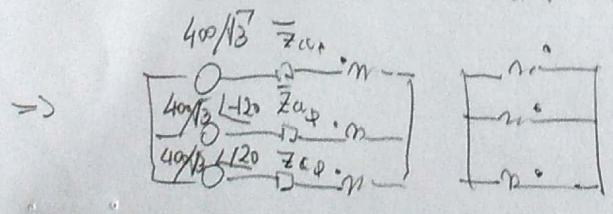 400/√3 Z̅cφ
⇒
400/√3 ∠-120 Z̅cφ
400/√3 ∠120 Z̅cφ